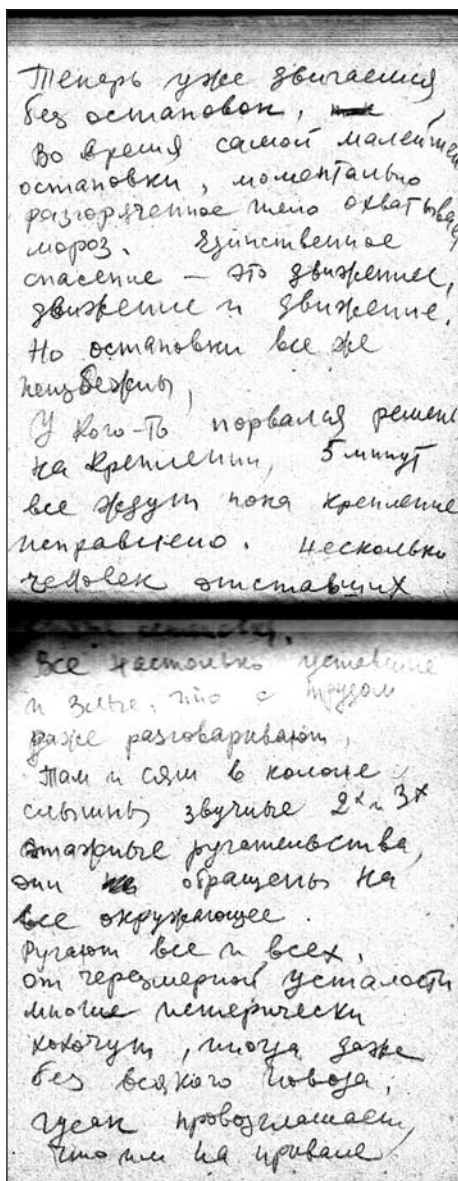 Теперь уже двигаемся
без остановок,
Во время самой малейшей
остановки, моментально
разгоряченное тело охватывает
мороз. Единственное
спасение — это движение,
движение и движение.
Но остановки все же
неизбежны,
У кого-то порвался ремень
на креплении, 5 минут
все ждут пока крепление
исправлено. Несколько
человек отставших
Все настолько уставшие
и злые, что с трудом
даже разговаривают,
Там и сям в колоне
слышны звучные 2х и 3х
этажные ругательства,
они обращены на
все окружающее.
Ругают все и всех,
от черезмерной усталости
многие истерически
хохочут, иногда даже
без всякого повода,
гусак провозглашает,
что им на привале